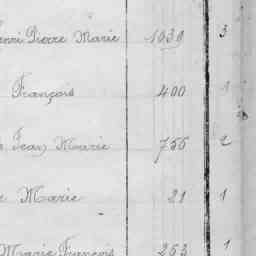 Pierre Marie 1039 3
François 400 1
Jean Marie 755 2
Marie 21 1
Marie François 253 1